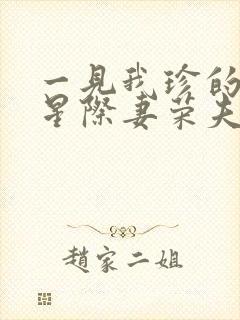 一見我珍的
星際妻荣夫
趙家二姐